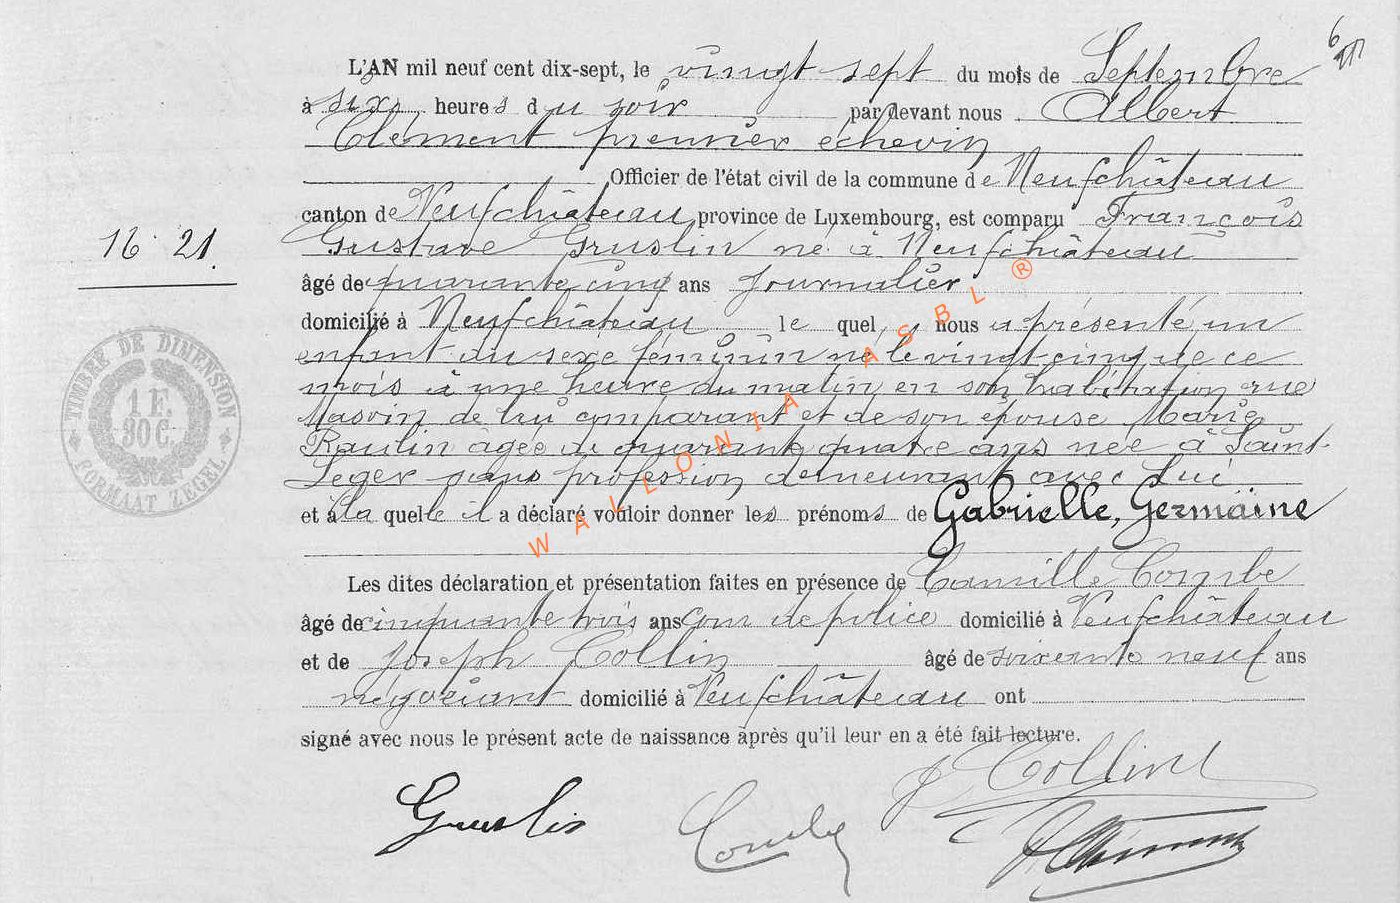 6
L'AN mil neuf cent dix-sept, le vingt sept du mois de Septembre
à six heures du soir par devant nous Albert
Clément premier échevin
Officier de l'état civil de la commune de Neufchâteau
canton de Neufchâteau, province de Luxembourg, est comparu François
Gustave Gruslin né à Neufchâteau
16 21.
âgé de quarante cinq ans journalier
domicilié à Neufchâteau le quel, nous a présenté un
enfant du sexe féminin né le vingt-cinq de ce
mois à une heure du matin en son habitation rue
de lui comparant et de son épouse Marie
Raulin âgée de quarante quatre ans née à Saint-
Léger sans profession demeurant avec lui
et à la quelle il a déclaré vouloir donner les prénoms de Gabrielle, Germaine
Les dites déclaration et présentation faites en présence de Camille Combe
âgé de cinquante trois ans com de police domicilié à Neufchâteau
et de Joseph Collin âgé de soixante neuf ans
négociant domicilié à Neufchâteau ont
signé avec nous le présent acte de naissance après qu'il leur en a été fait lecture.
J. Collin
Gruslin
Combe
A. Clément
TIMBRE DE DIMENSION
1 F.
30 C.
FORMAAT ZEGEL
WALLONIA ASBL ®